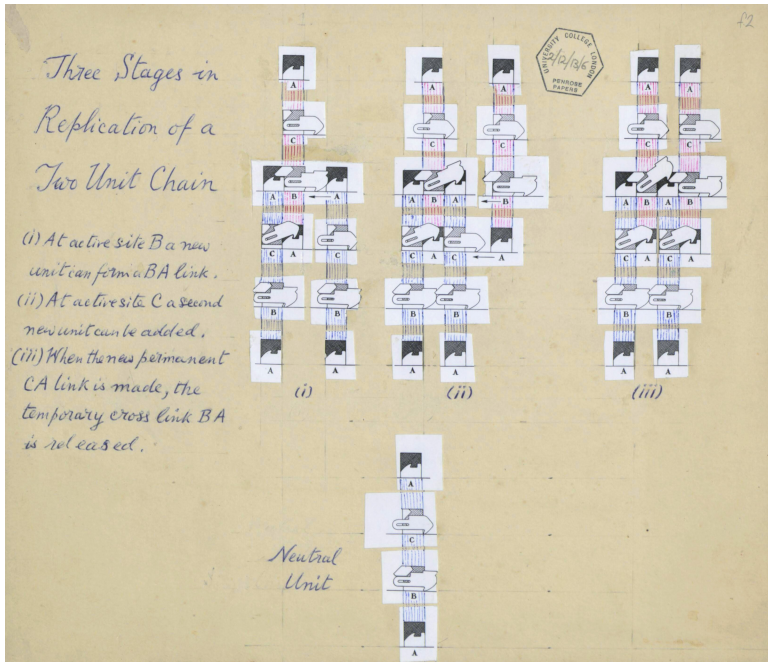 f2
Three Stages in
Replication of a
Two Unit Chain
(i) At active site B a new
unit can form a BA link.
(ii) At active site C a second
new unit can be added.
(iii) When the new permanent
CA link is made, the
temporary cross link BA
is released.
UNIVERSITY COLLEGE LONDON
2/12/13/6
PENROSE
PAPERS
A
C
A B A
C A C
B
A A
(i)
A A
C C
A B A B
C A C A
B B
A A
(ii)
A A
C C
A B A B
C A C A
B B
A A
(iii)
Neutral
Unit
A
C
B
A